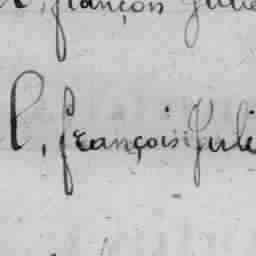 françois Julie
l, françois Juli